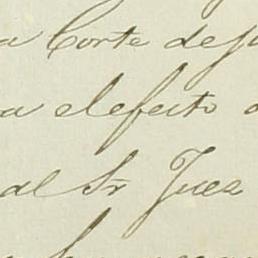 a Corte de
a el efeito
al Sr Juez